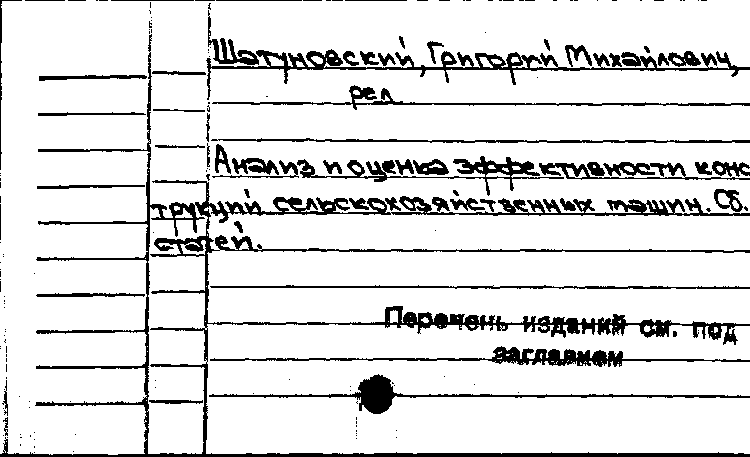 Шатуновский, Григорий Михайлович,
ред.
Анализ и оценка эффективности конс
трукций сельскохозяйственных машин. Сб.
статей.
Перечень изданий см. под
заглавием